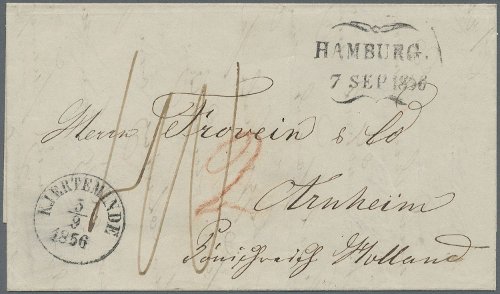 HAMBURG.
7 SEP 1856
Herrn Frowein & Co
2
Arnheim
Königreich Holland
KJERTEMINDE
5
9
1856